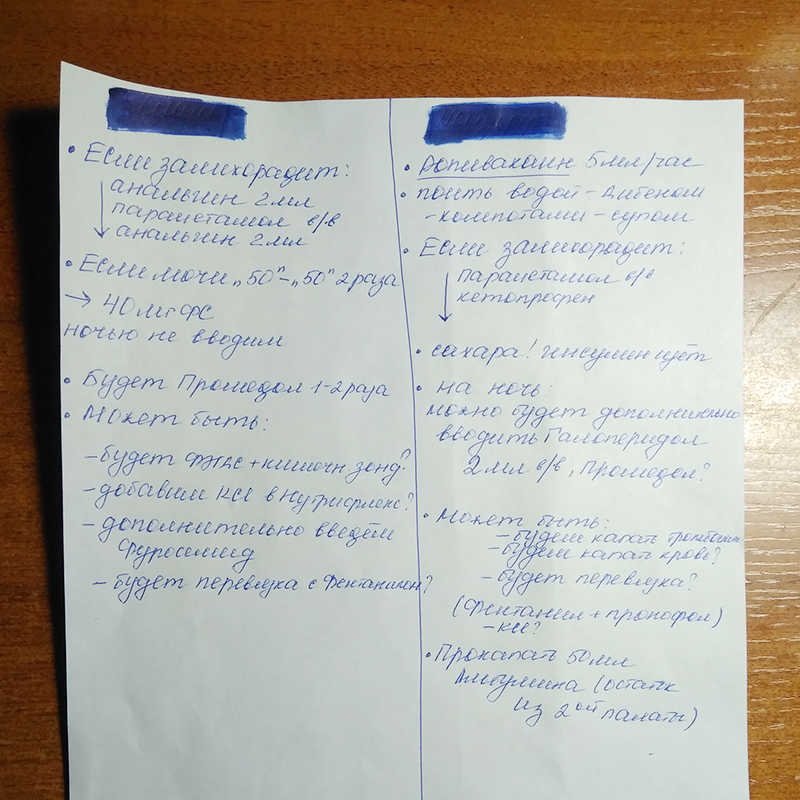 • Если залихорадит:
анальгин 2 мл
парацетамол в/в
анальгин 2 мл
• Если мочи „50"-„50" 2 раза
→ 40 мг ФС
ночью не вводим
• Будет Промедол 1-2 раза
• Может быть:
- будет ФЭГАС + кишечн зонд?
- добавим KCl в Нутрифлекс?
- дополнительно введём
Фуросемид
- будет перевязка с Фентанилом?
• Ропивакаин 5 мл/час
• поить водой - Дибеном
- компотами - супом
• Если залихорадит:
парацетамол в/в
кетопрофен
• сахара! инсулин идёт
• на ночь:
можно будет дополнительно
вводить Галоперидол
2 мл в/в, Промедол?
• Может быть:
- будем капать
- будем капать кровь?
- будет перевязка?
(Фентанил + пропофол)
- KCl?
• Прокапать 50 мл
Альбумина (остаток
из 2ой палаты)